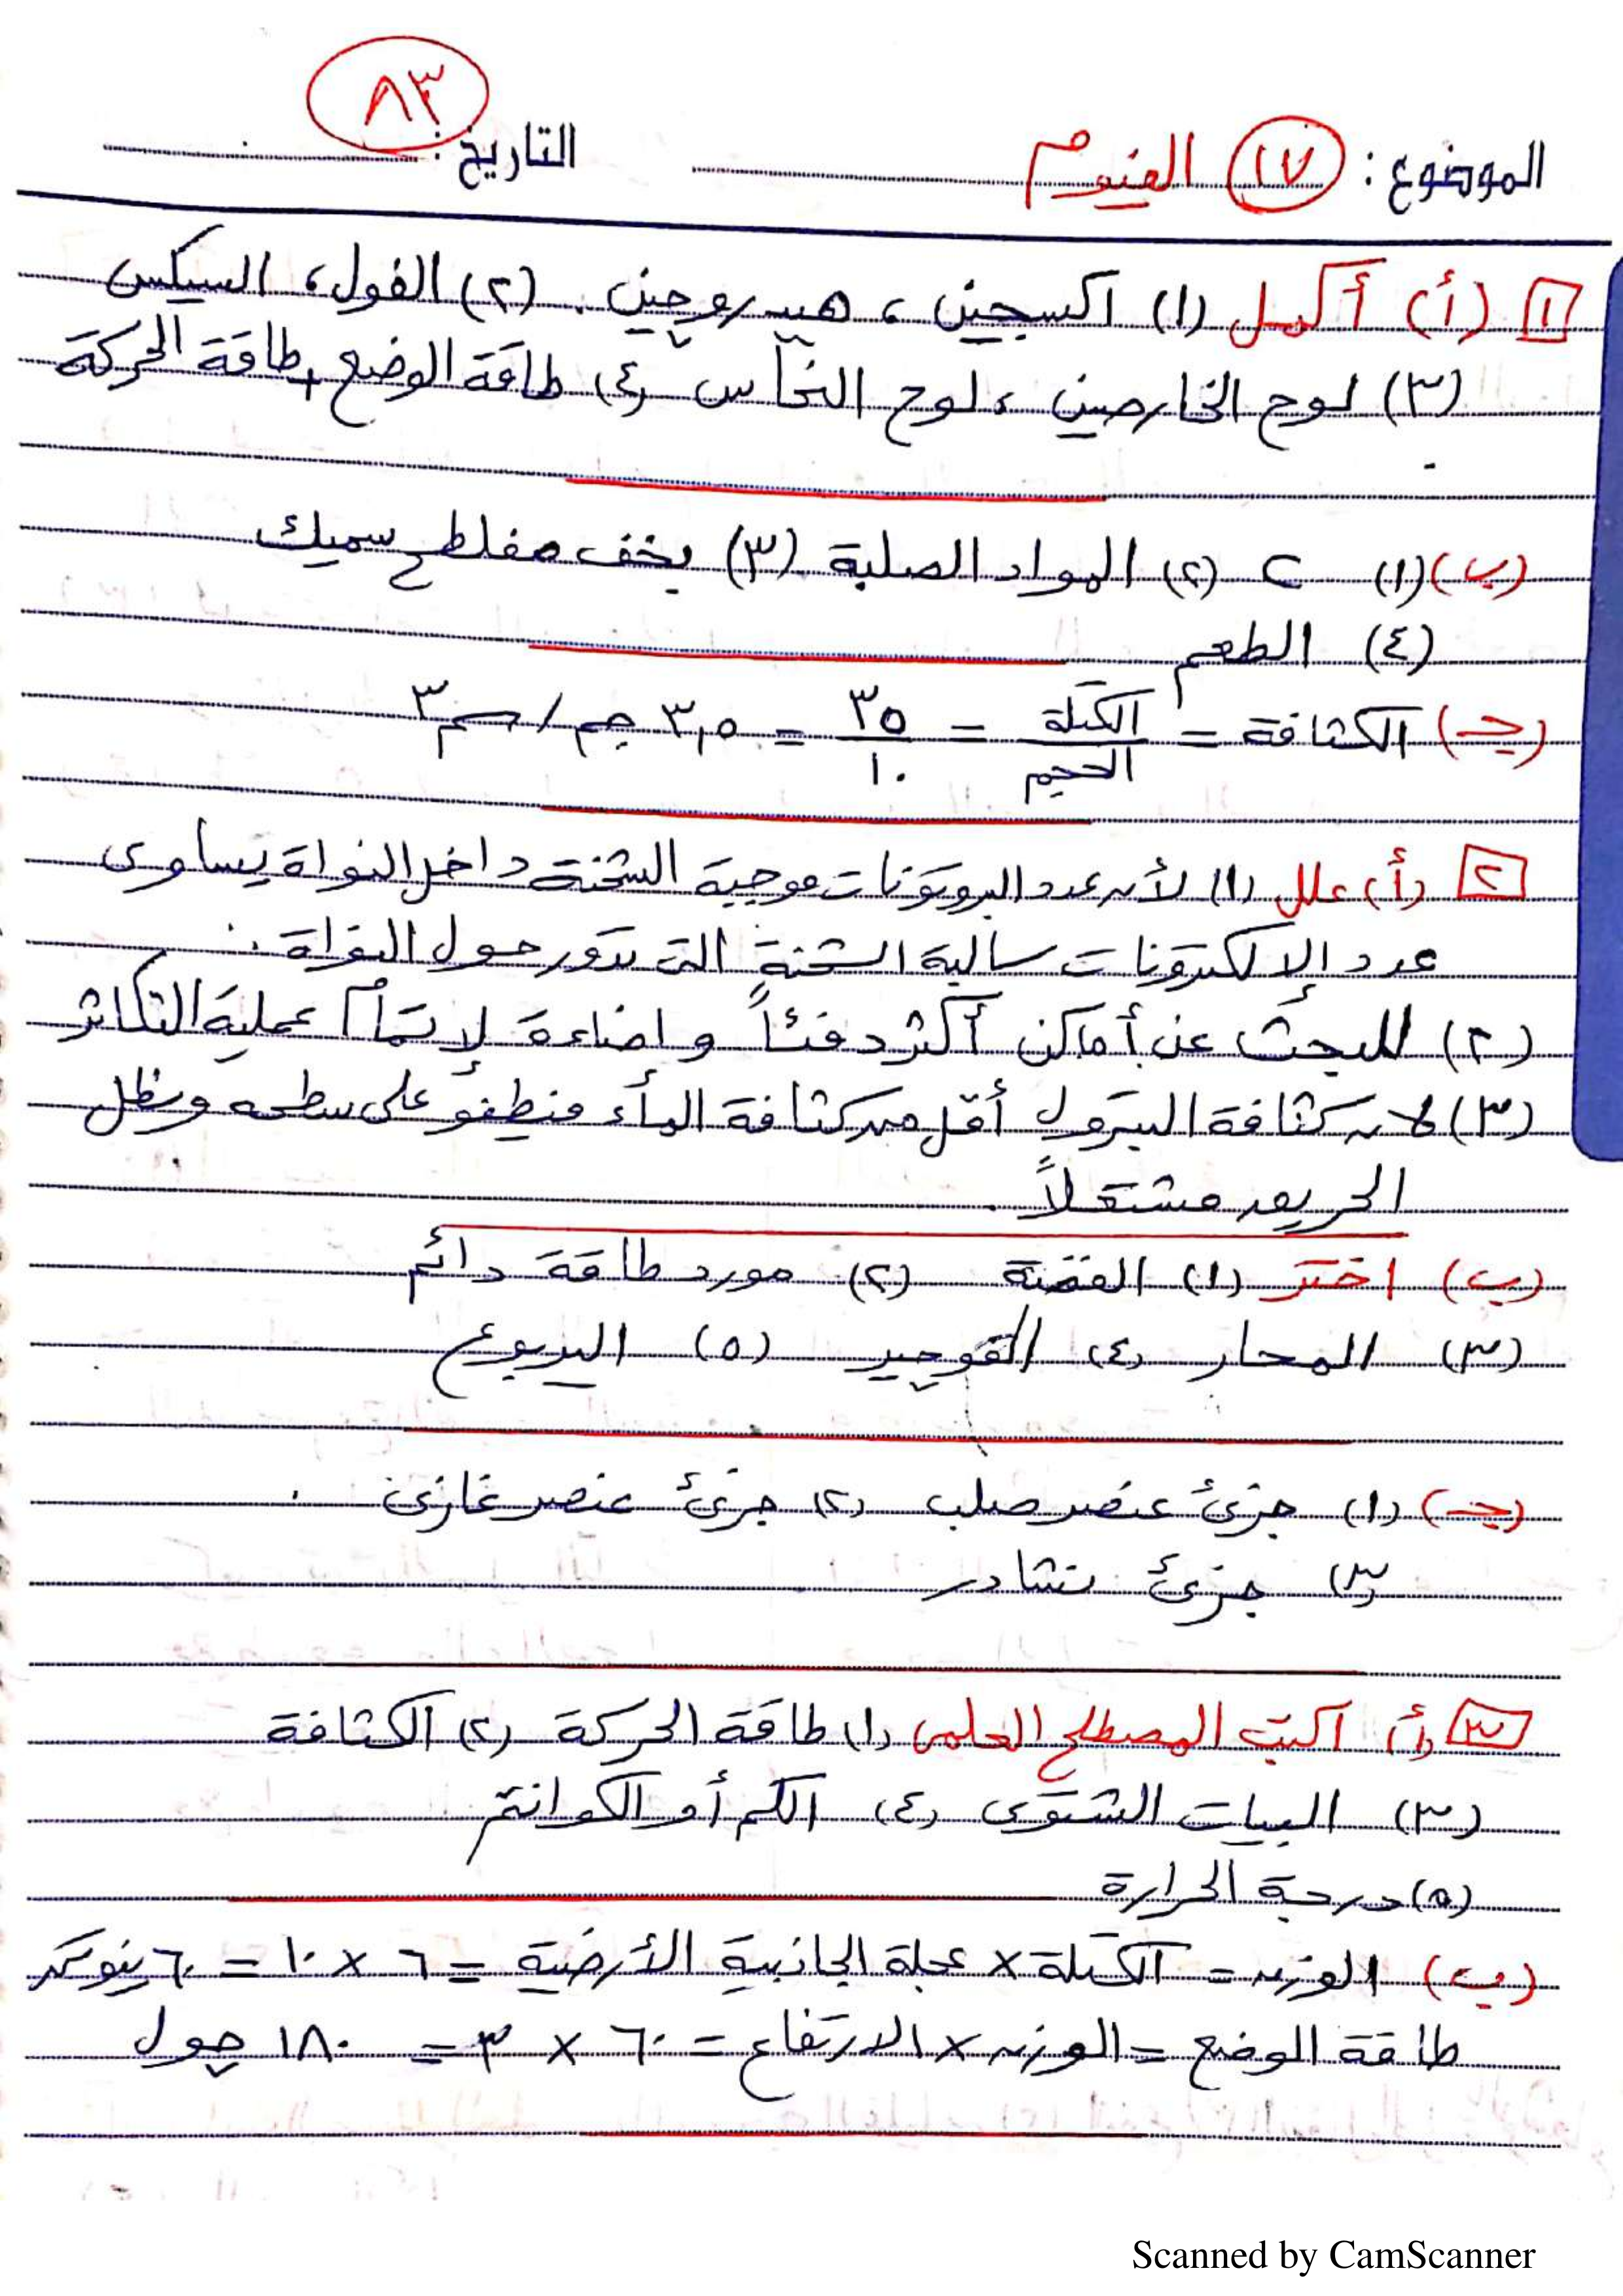 ٨٣
الموضوع: ١٧ الفيوم التاريخ:
١ (أ) أكمل (١) اكسجين، هيدروجين. (٢) الفول، السيكس
(٣) لوح الخارصين، لوح النحاس (٤) طاقة الوضع + طاقة الحركة
(ب) (١) C (٢) المواد الصلبة (٣) يخف مفلطح سميك
(٤) الطعم
(جـ) الكثافة = الكتلة / الحجم = ٣٥ / ١٠ = ٣,٥ جم / سم٣
٢ (أ) علل (١) لأن عدد البروتونات موجبة الشحنة داخل النواة يساوى
عدد الإلكترونات سالبة الشحنة التى تدور حول النواة.
(٢) للبحث عن أماكن أكثر دفئاً و اضاءة لإتمام عملية التكاثر
(٣) لأن كثافة البترول أقل من كثافة الماء فيطفو على سطحه ويظل
الحريق مشتعلاً.
(ب) اختر (١) الفضة (٢) مورد طاقة دائم
(٣) المحار (٤) القوجير (٥) اليربوع
(جـ) (١) جزئ عنصر صلب (٢) جزئ عنصر غازى.
(٣) جزئ نشادر
٣ (أ) اكتب المصطلح العلمى (١) طاقة الحركة (٢) الكثافة
(٣) البيات الشتوى (٤) الكم أو الكوانتم
(٥) درجة الحرارة
(ب) الوزن = الكتلة × عجلة الجاذبية الأرضية = ٦ × ١٠ = ٦٠ نيوتن
طاقة الوضع = الوزن × الارتفاع = ٦٠ × ٣ = ١٨٠ جول
Scanned by CamScanner